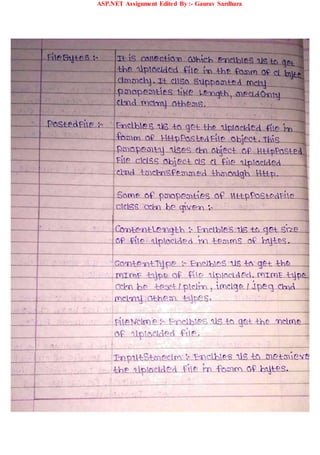 ASP.NET Assignment Edited By :- Gaurav Sardhara
FileBytes :- It is collection which enables us to get
the uploaded file in the form of a byte
array. It also supported many
properties like Length, readOnly
and many others.
PostedFile :- Enables us to get the uploaded file in
form of HttpPostedFile object. This
property uses an object of HttpPosted
File class object as a file uploaded
and transferred through Http.
Some of properties of HttpPostedFile
class can be given :-
ContentLength :- Enables us to get size
of file uploaded in terms of bytes.
ContentType :- Enables us to get the
MIME type of file uploaded. MIME type
can be text / plain, image / jpeg and
many other types.
FileName :- Enables us to get the name
of uploaded file.
InputStream :- Enables us to retrieve
the uploaded file in form of bytes.